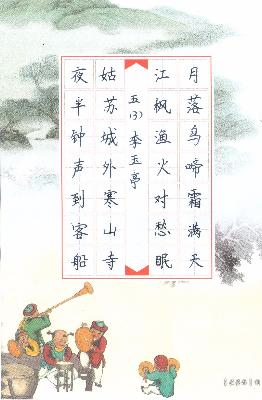 月落乌啼霜满天
江枫渔火对愁眠
五(3) 李玉亭
姑苏城外寒山寺
夜半钟声到客船